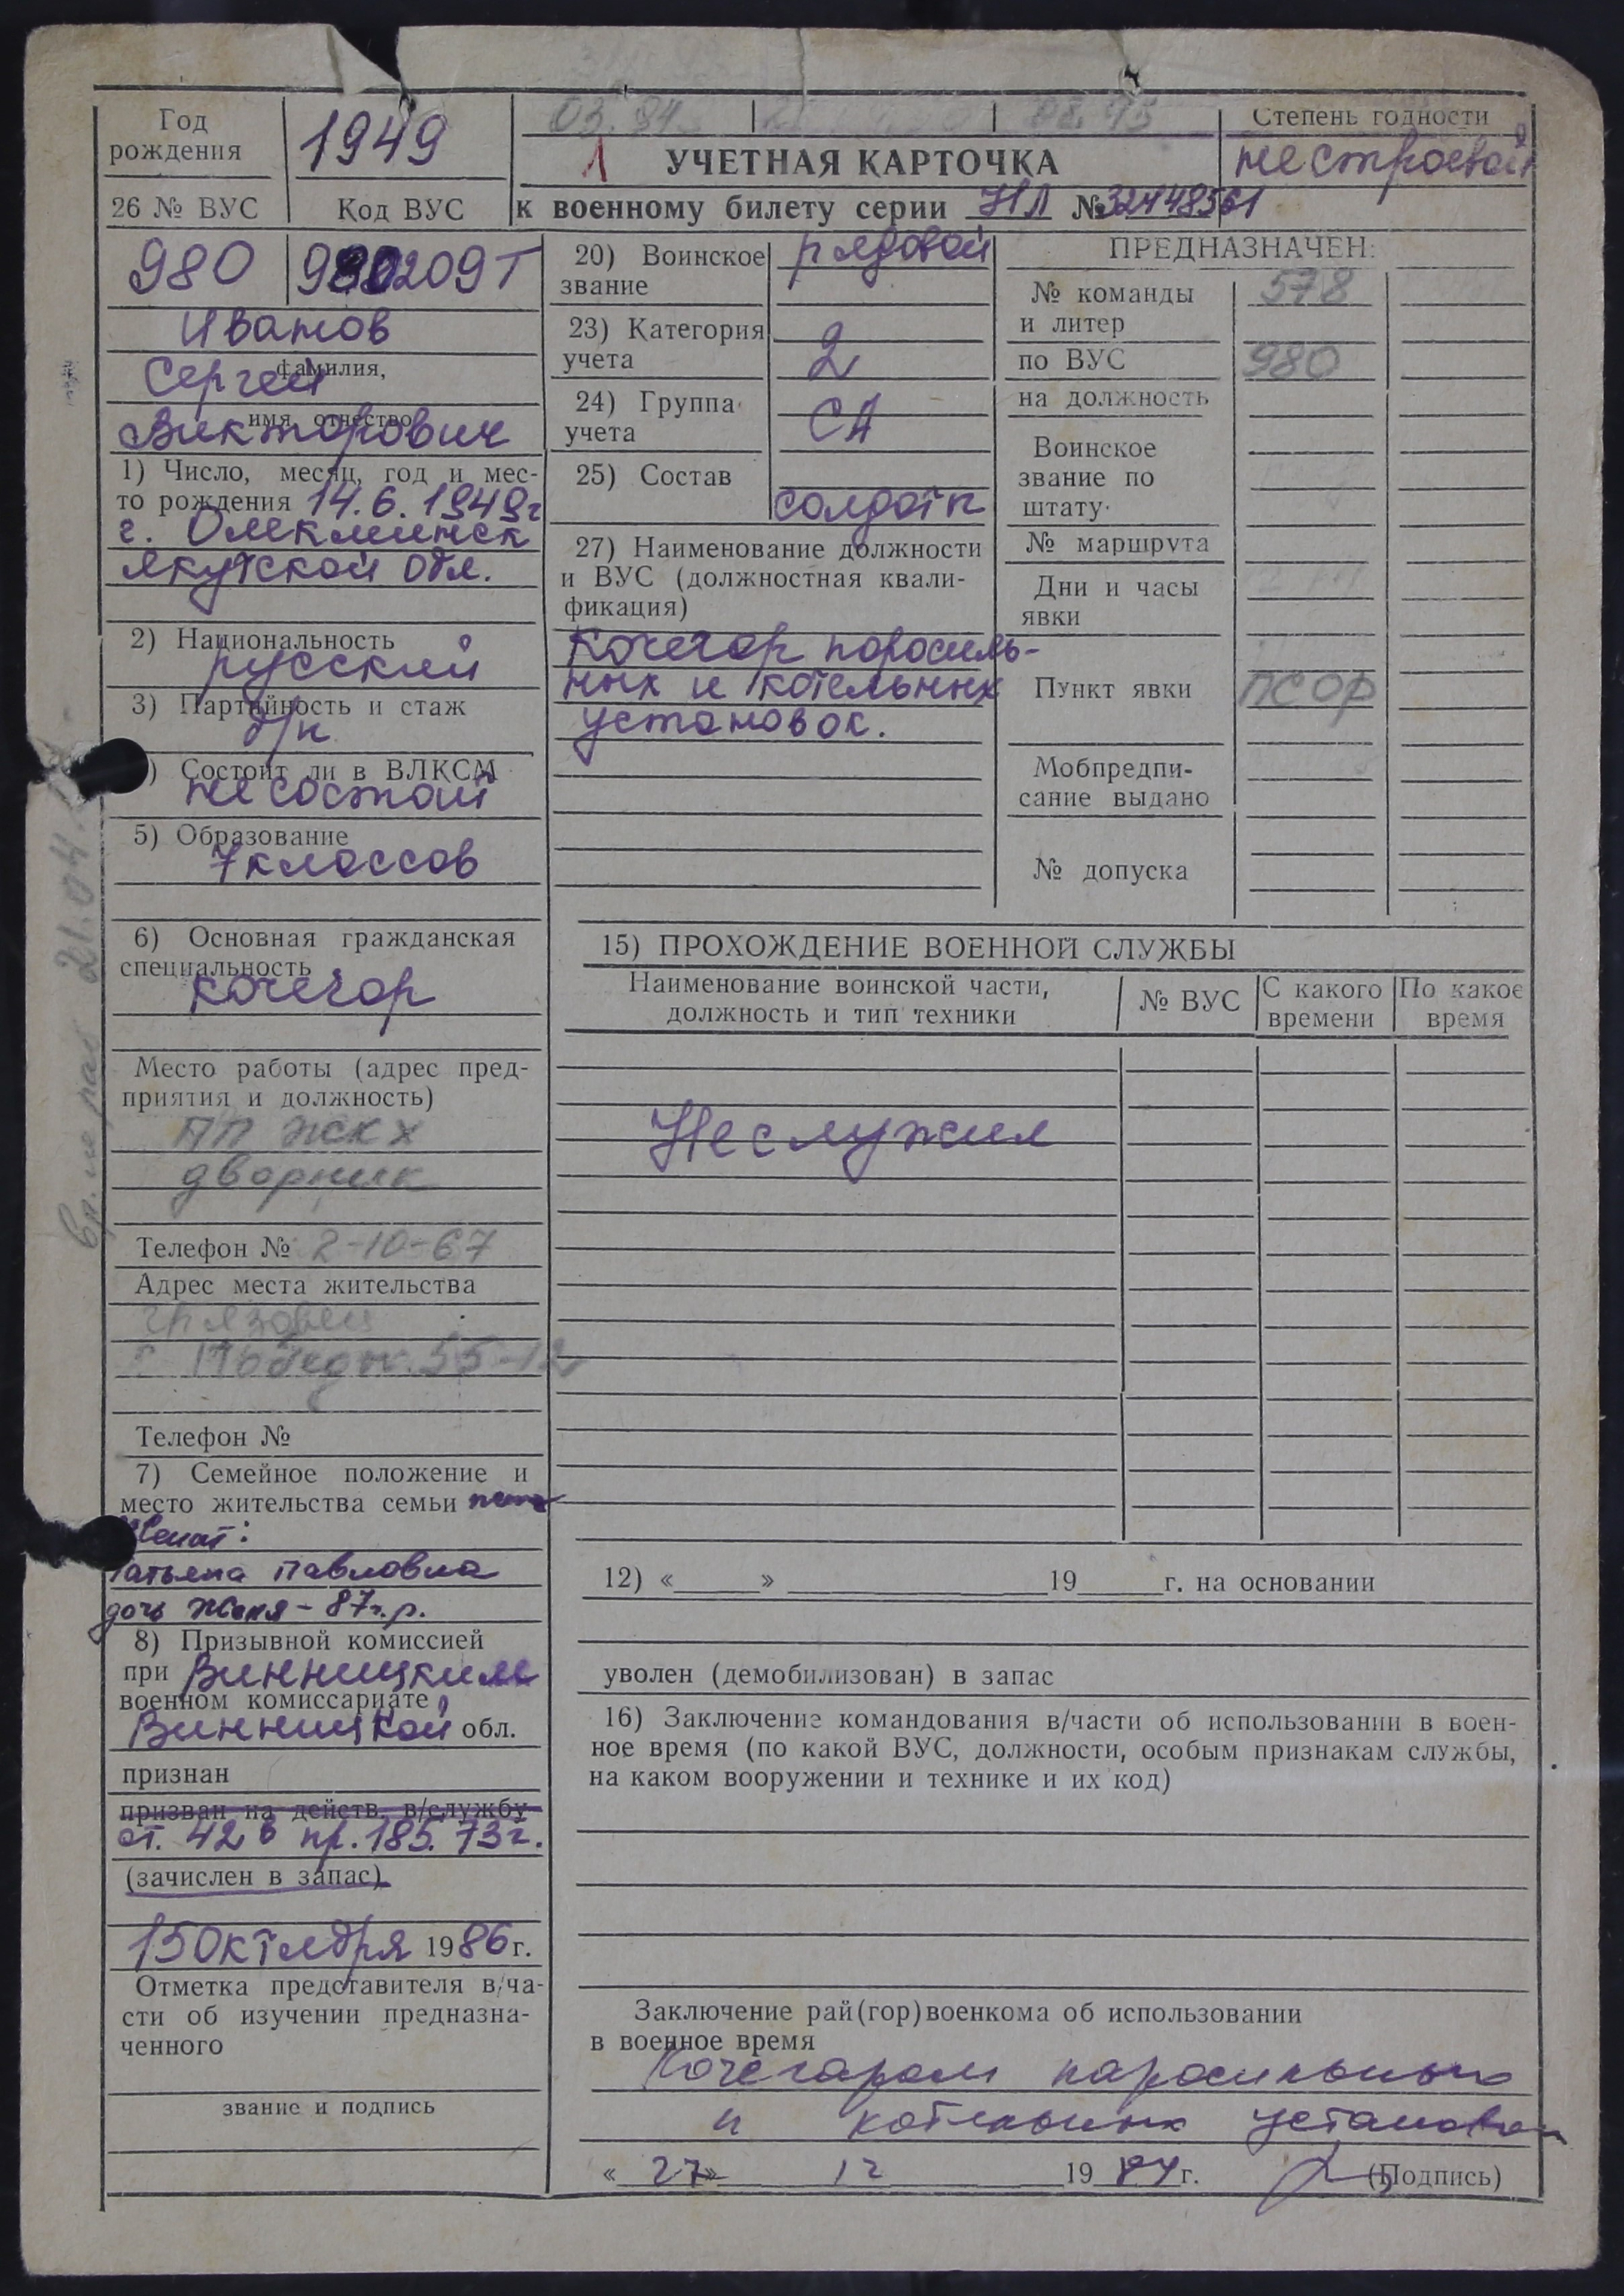 Год
рождения
1949
03.94
08.95
Степень годности
нестроевой
1 УЧЕТНАЯ КАРТОЧКА
26 № ВУС
Код ВУС
к военному билету серии НЛ №
980
9802209Т
Иванов
фамилия,
Сергей
имя, отчество
Викторович
1) Число, месяц, год и мес-
то рождения 14.6.1949г
г. Олекминск
Якутской обл.
2) Национальность
русский
3) Партийность и стаж
б/п
) Состоит ли в ВЛКСМ
не состоит
5) Образование
7 классов
6) Основная гражданская
специальность
кочегар
Место работы (адрес пред-
приятия и должность)
ПП ЖКХ
дворник
Телефон № 2-10-67
Адрес места жительства
Грязовец
55-12
Телефон №
7) Семейное положение и
место жительства семьи
Женат:
Татьяна Павловна
дочь Женя - 87г.р.
8) Призывной комиссией
при Винницким
военном комиссариате
Винницкой обл.
признан
призван на действ. в/службу
ст. 42б пр. 185. 73г.
(зачислен в запас)
15 октября 1986 г.
Отметка представителя в/ча-
сти об изучении предназна-
ченного
звание и подпись
20) Воинское
звание
рядовой
23) Категория
учета
2
24) Группа
учета
СА
25) Состав
солдаты
27) Наименование должности
и ВУС (должностная квали-
фикация)
Кочегар паросиль-
ных и котельных
установок.
ПРЕДНАЗНАЧЕН:
№ команды
и литер
578
по ВУС
980
на должность
Воинское
звание по
штату
№ маршрута
Дни и часы
явки
Пункт явки
ПСОР
Мобпредпи-
сание выдано
№ допуска
15) ПРОХОЖДЕНИЕ ВОЕННОЙ СЛУЖБЫ
Наименование воинской части,
должность и тип техники
№ ВУС
С какого
времени
По какое
время
Не служил
12) « » 19 г. на основании
уволен (демобилизован) в запас
16) Заключение командования в/части об использовании в воен-
ное время (по какой ВУС, должности, особым признакам службы,
на каком вооружении и технике и их код)
Заключение рай(гор)военкома об использовании
в военное время
Кочегаром паросильных
и котельных установок
«27» 12 19 г. (Подпись)
21.04.